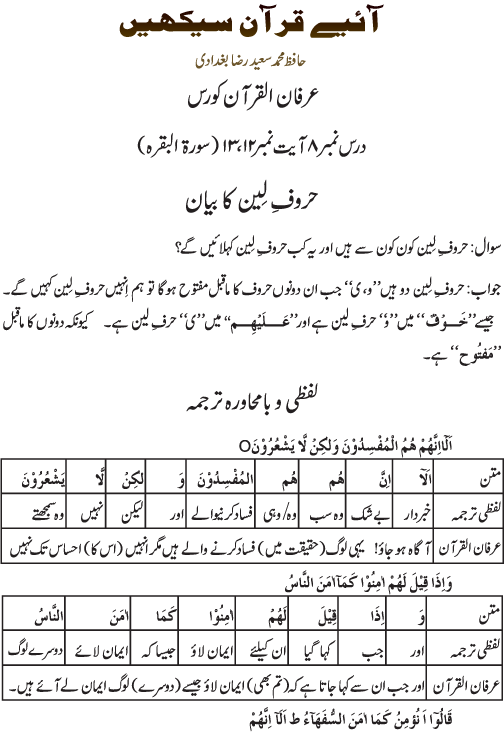 آئیے قرآن سیکھیں
حافظ محمد سعید رضا بغدادی
عرفان القرآن کورس
درس نمبر ۸ آیت نمبر ۱۲،۱۳ (سورۃ البقرہ)
حروفِ لِین کا بیان
سوال: حروفِ لین کون کون سے ہیں اور یہ کب حروفِ لین کہلائیں گے؟
جواب: حروفِ لین دو ہیں ”و، ی“ جب ان دونوں حروف کا ماقبل مفتوح ہوگا تو ہم اِنہیں حروفِ لین کہیں گے۔
جیسے ”خَوْفٌ“ میں ”وْ“ حرفِ لین ہے اور ”عَلَیْهِم“ میں ”ی“ حرفِ لین ہے۔ کیونکہ دونوں کا ماقبل
”مَفتُوح“ ہے۔
لفظی و بامحاورہ ترجمہ
اَلَآ اِنَّهُمْ هُمُ الْمُفْسِدُوْنَ وَلٰكِنْ لَّا يَشْعُرُوْنَO
متن اَلَآ اِنَّ هُمْ هُم الْمُفْسِدُوْنَ وَ لٰكِنْ لَّا يَشْعُرُوْنَ
لفظی ترجمہ خبردار بے شک وہ سب وہ/وہی فساد کرنیوالے اور لیکن نہیں وہ سمجھتے
عرفان القرآن آگاہ ہو جاؤ! یہی لوگ (حقیقت میں) فساد کرنے والے ہیں مگر انہیں (اس کا) احساس تک نہیں
وَاِذَا قِيْلَ لَهُمْ اٰمِنُوْا كَمَآ اٰمَنَ النَّاسُ
متن وَ اِذَا قِيْلَ لَهُمْ اٰمِنُوْا كَمَا اٰمَنَ النَّاسُ
لفظی ترجمہ اور جب کہا گیا ان کیلئے ایمان لاؤ جیسا کہ ایمان لائے دوسرے لوگ
عرفان القرآن اور جب ان سے کہا جاتا ہے کہ (تم بھی) ایمان لاؤ جیسے (دوسرے) لوگ ایمان لے آئے ہیں۔
قَالُوْا اَنُؤْمِنُ كَمَا اٰمَنَ السُّفَهَآءُ ط اَلَآ اِنَّهُمْ